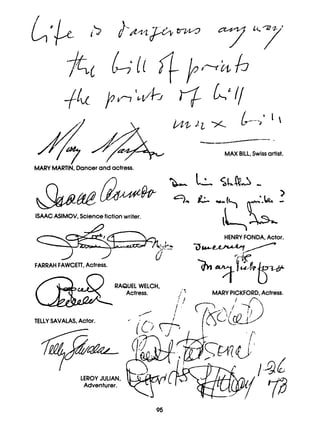 life is dangerous anyway
the bill of prints
the prints of bill
max bill
MAX BILL, Swiss artist.
Mary Martin
MARY MARTIN, Dancer and actress.
Isaac Asimov
ISAAC ASIMOV, Science fiction writer.
Dear
Is this really possible?
Henry Fonda
HENRY FONDA, Actor.
Love,
Farrah Fawcett
FARRAH FAWCETT, Actress.
Sincerely
Mary Pickford
MARY PICKFORD, Actress.
Raquel
RAQUEL WELCH,
Actress.
TELLY SAVALAS, Actor.
Telly Savalas
To
Best Personal
Regards
1-26
78
LEROY JULIAN,
Adventurer.
95